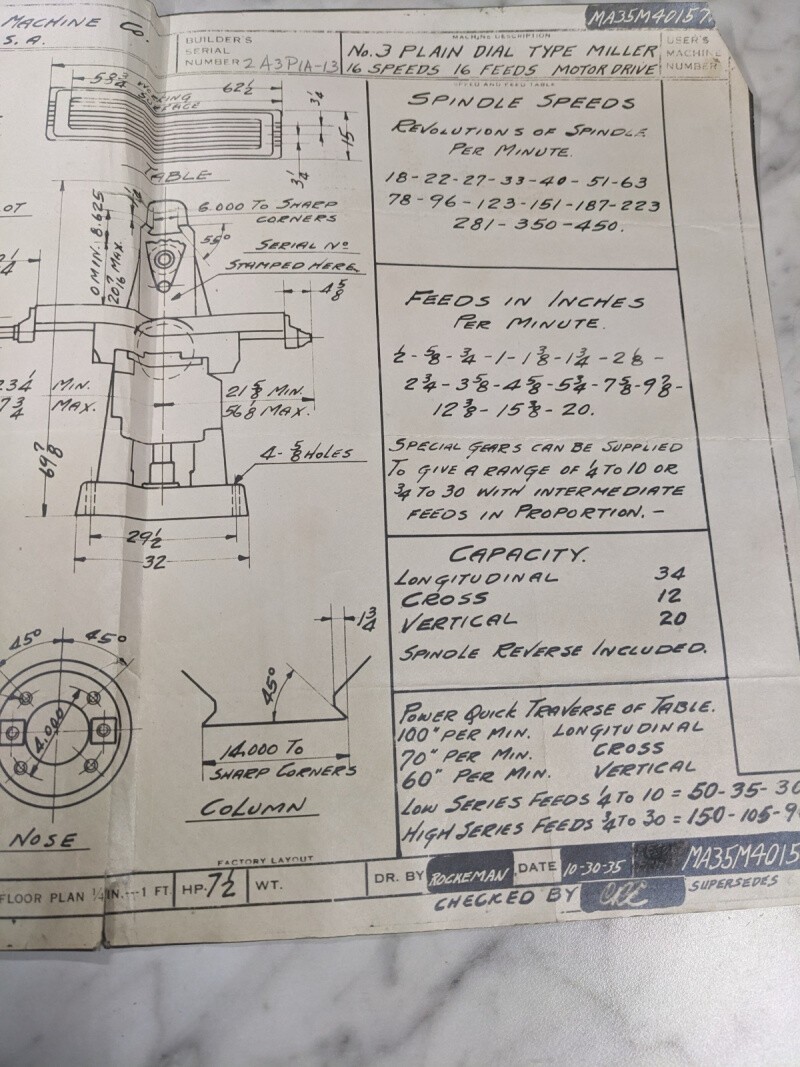 MACHINE CO.
S. A.
BUILDER'S
SERIAL
NUMBER 2A3P1A-13
MACHINE DESCRIPTION
No. 3 PLAIN DIAL TYPE MILLER
16 SPEEDS 16 FEEDS MOTOR DRIVE
MA35M40157.
USER'S
MACHINE
NUMBER
SPEED AND FEED TABLE
SPINDLE SPEEDS
REVOLUTIONS OF SPINDLE
PER MINUTE.
18-22-27-33-40-51-63
78-96-123-151-187-223
281-350-450.
FEEDS IN INCHES
PER MINUTE.
1/2-5/8-3/4-1-1 3/8-1 3/4-2 1/8-
2 3/4-3 5/8-4 5/8-5 3/4-7 5/8-9 7/8-
12 3/8-15 3/8-20.
SPECIAL GEARS CAN BE SUPPLIED
TO GIVE A RANGE OF 1/4 TO 10 OR
3/4 TO 30 WITH INTERMEDIATE
FEEDS IN PROPORTION.-
CAPACITY.
LONGITUDINAL 34
CROSS 12
VERTICAL 20
SPINDLE REVERSE INCLUDED.
POWER QUICK TRAVERSE OF TABLE.
100" PER MIN. LONGITUDINAL
70" PER MIN. CROSS
60" PER MIN. VERTICAL
LOW SERIES FEEDS 1/4 TO 10 = 50-35-30
HIGH SERIES FEEDS 3/4 TO 30 = 150-105-9
58 3/4 WORKING
SURFACE
62 1/2
3 1/4
15
3 1/4
TABLE
OT
8.625
1 1/2
0 MIN.
20 7/16 MAX.
6.000 TO SHARP
CORNERS
55°
SERIAL No
STAMPED HERE
4 5/8
23 1/4 MIN.
7 3/4 MAX.
21 5/8 MIN.
56 1/8 MAX.
69 7/8
4-5/8 HOLES
29 1/2
32
45° 45°
4.000
NOSE
1 3/4
45°
14.000 TO
SHARP CORNERS
COLUMN
FACTORY LAYOUT
FLOOR PLAN 1/4 IN.---1 FT.
HP. 7 1/2
WT.
DR. BY ROCKEMAN
DATE 10-30-35
MA35M4015
CHECKED BY
SUPERSEDES